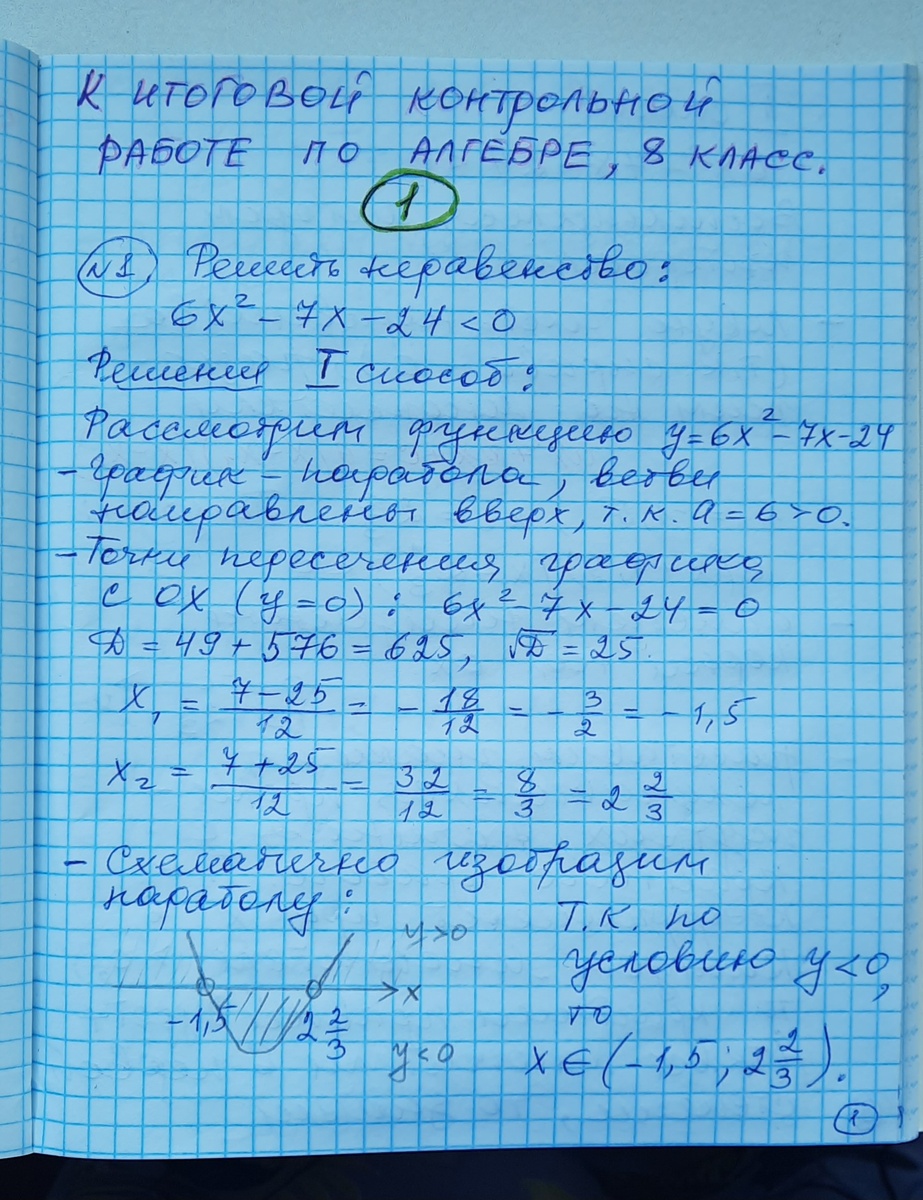 К ИТОГОВОЙ КОНТРОЛЬНОЙ
РАБОТЕ ПО АЛГЕБРЕ, 8 КЛАСС.
1
№1 Решить неравенство:
6x² – 7x – 24 < 0
Решения I способ:
Рассмотрим функцию y=6x²–7x–24
– График – парабола, ветви
направлены вверх, т.к. a = 6 > 0.
– Точки пересечения графика
с OX (y=0): 6x² – 7x – 24 = 0
D = 49 + 576 = 625, √D = 25.
x₁ = (7 – 25)/12 = – 18/12 = – 3/2 = – 1,5
x₂ = (7 + 25)/12 = 32/12 = 8/3 = 2 2/3
– Схематично изобразим
параболу:
y>0
x
–1,5
2 2/3
y<0
Т.к. по
условию y<0,
то
x ∈ (–1,5 ; 2 2/3).
1